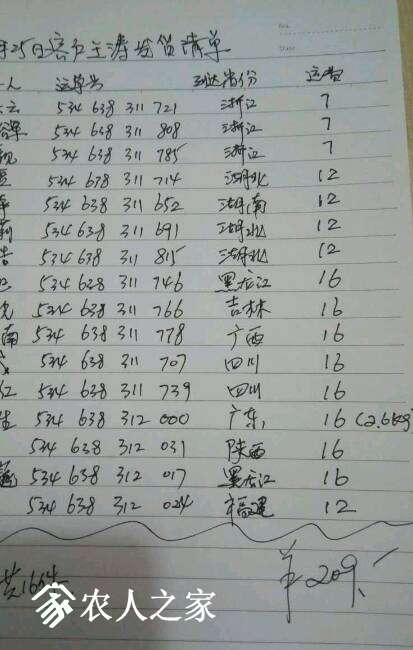 No.
Date
月25日客户王涛发货清单
人 运单号 到达省份 运费
云 534 638 311 721 浙江 7
534 638 311 808 浙江 7
534 638 311 785 浙江 7
534 638 311 714 湖北 12
534 638 311 652 湖南 12
莉 534 638 311 691 湖北 12
吉 534 638 311 815 湖北 12
534 638 311 746 黑龙江 16
534 638 311 766 吉林 16
南 534 638 311 778 广西 16
534 638 311 707 四川 16
红 534 638 311 739 四川 16
生 534 638 312 000 广东 16 (2.6kg)
534 638 312 031 陕西 16
534 638 312 017 黑龙江 16
534 638 312 024 福建 12
共16件
209
农人之家